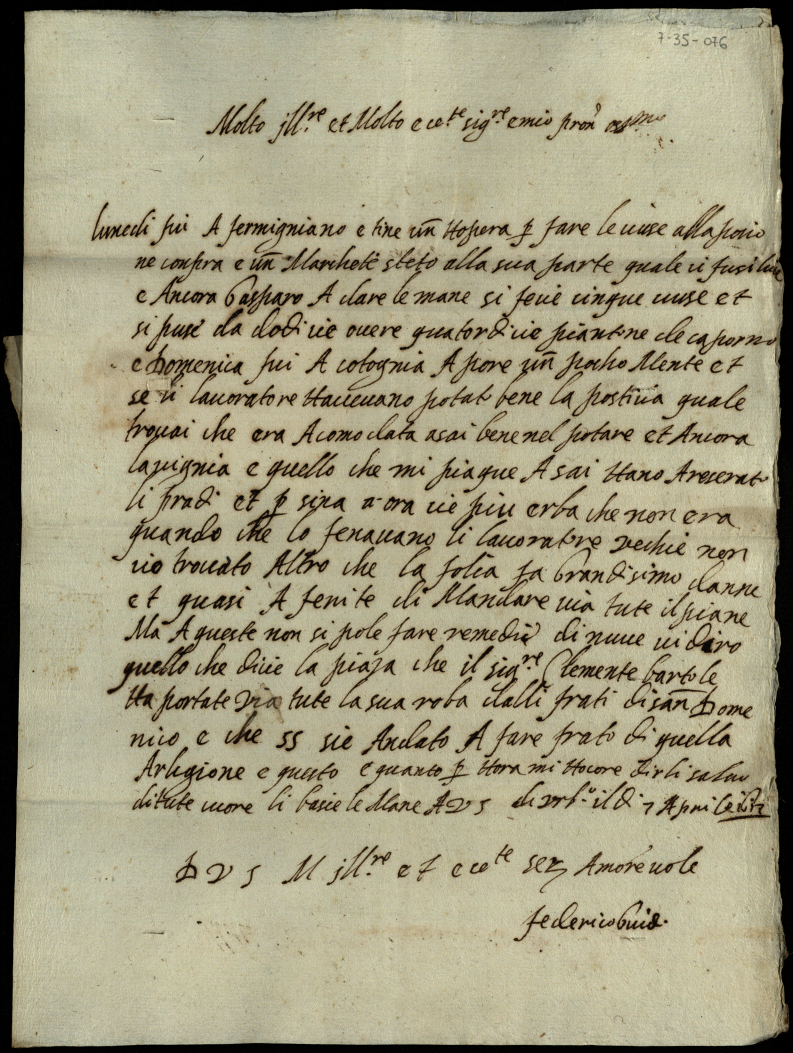 7-35-076
Molto jll.re et Molto ecc.te sig.re e mio pron̄ oss.mo
lunedi fui A fermigniano e tine un̄ Hopera p̱ fare le viuse alla posio
ne conpra e un̄ Marchetē steto alla sua parte quale vi fusi
e Ancora Gasparo A dare le mane si fecie cinque viuse et
si puse da dodicie overe quatordicie piantine de caporno
e Domenica fui A cotognia A pore un̄ pocho Mente et
se li lavoratore Hacievano potat bene la postiva quale
trovai che era Acomodata asai bene nel potare et Ancora
la vignia e quello che mi piaque Asai Hano Areserat
li pradi et p̱ sina a ora cie piu erba che non era
quando che lo fenavano li lavoratore vechie non
vio trovato Altro che la folia fa Grandisimo danne
et quasi A fenite di Mandare via tute il piane
Ma A queste non si pole fare remedie di nuve vi diro
quello che dicie la piaza che il sig.re Clemente bartole
Ha portate via tute la sua roba dalli frati di san̄ Dome
nico e che SS sie Andato A fare frato di quella
Arligione e questo e quanto p̱ Hora mi Hocore dirli salvo
di tute cuore li basie le Mane A V S di urb.o il di 7 Aprile
D V S M jll.re et ecc.te ser Amorevole
federico Guid.